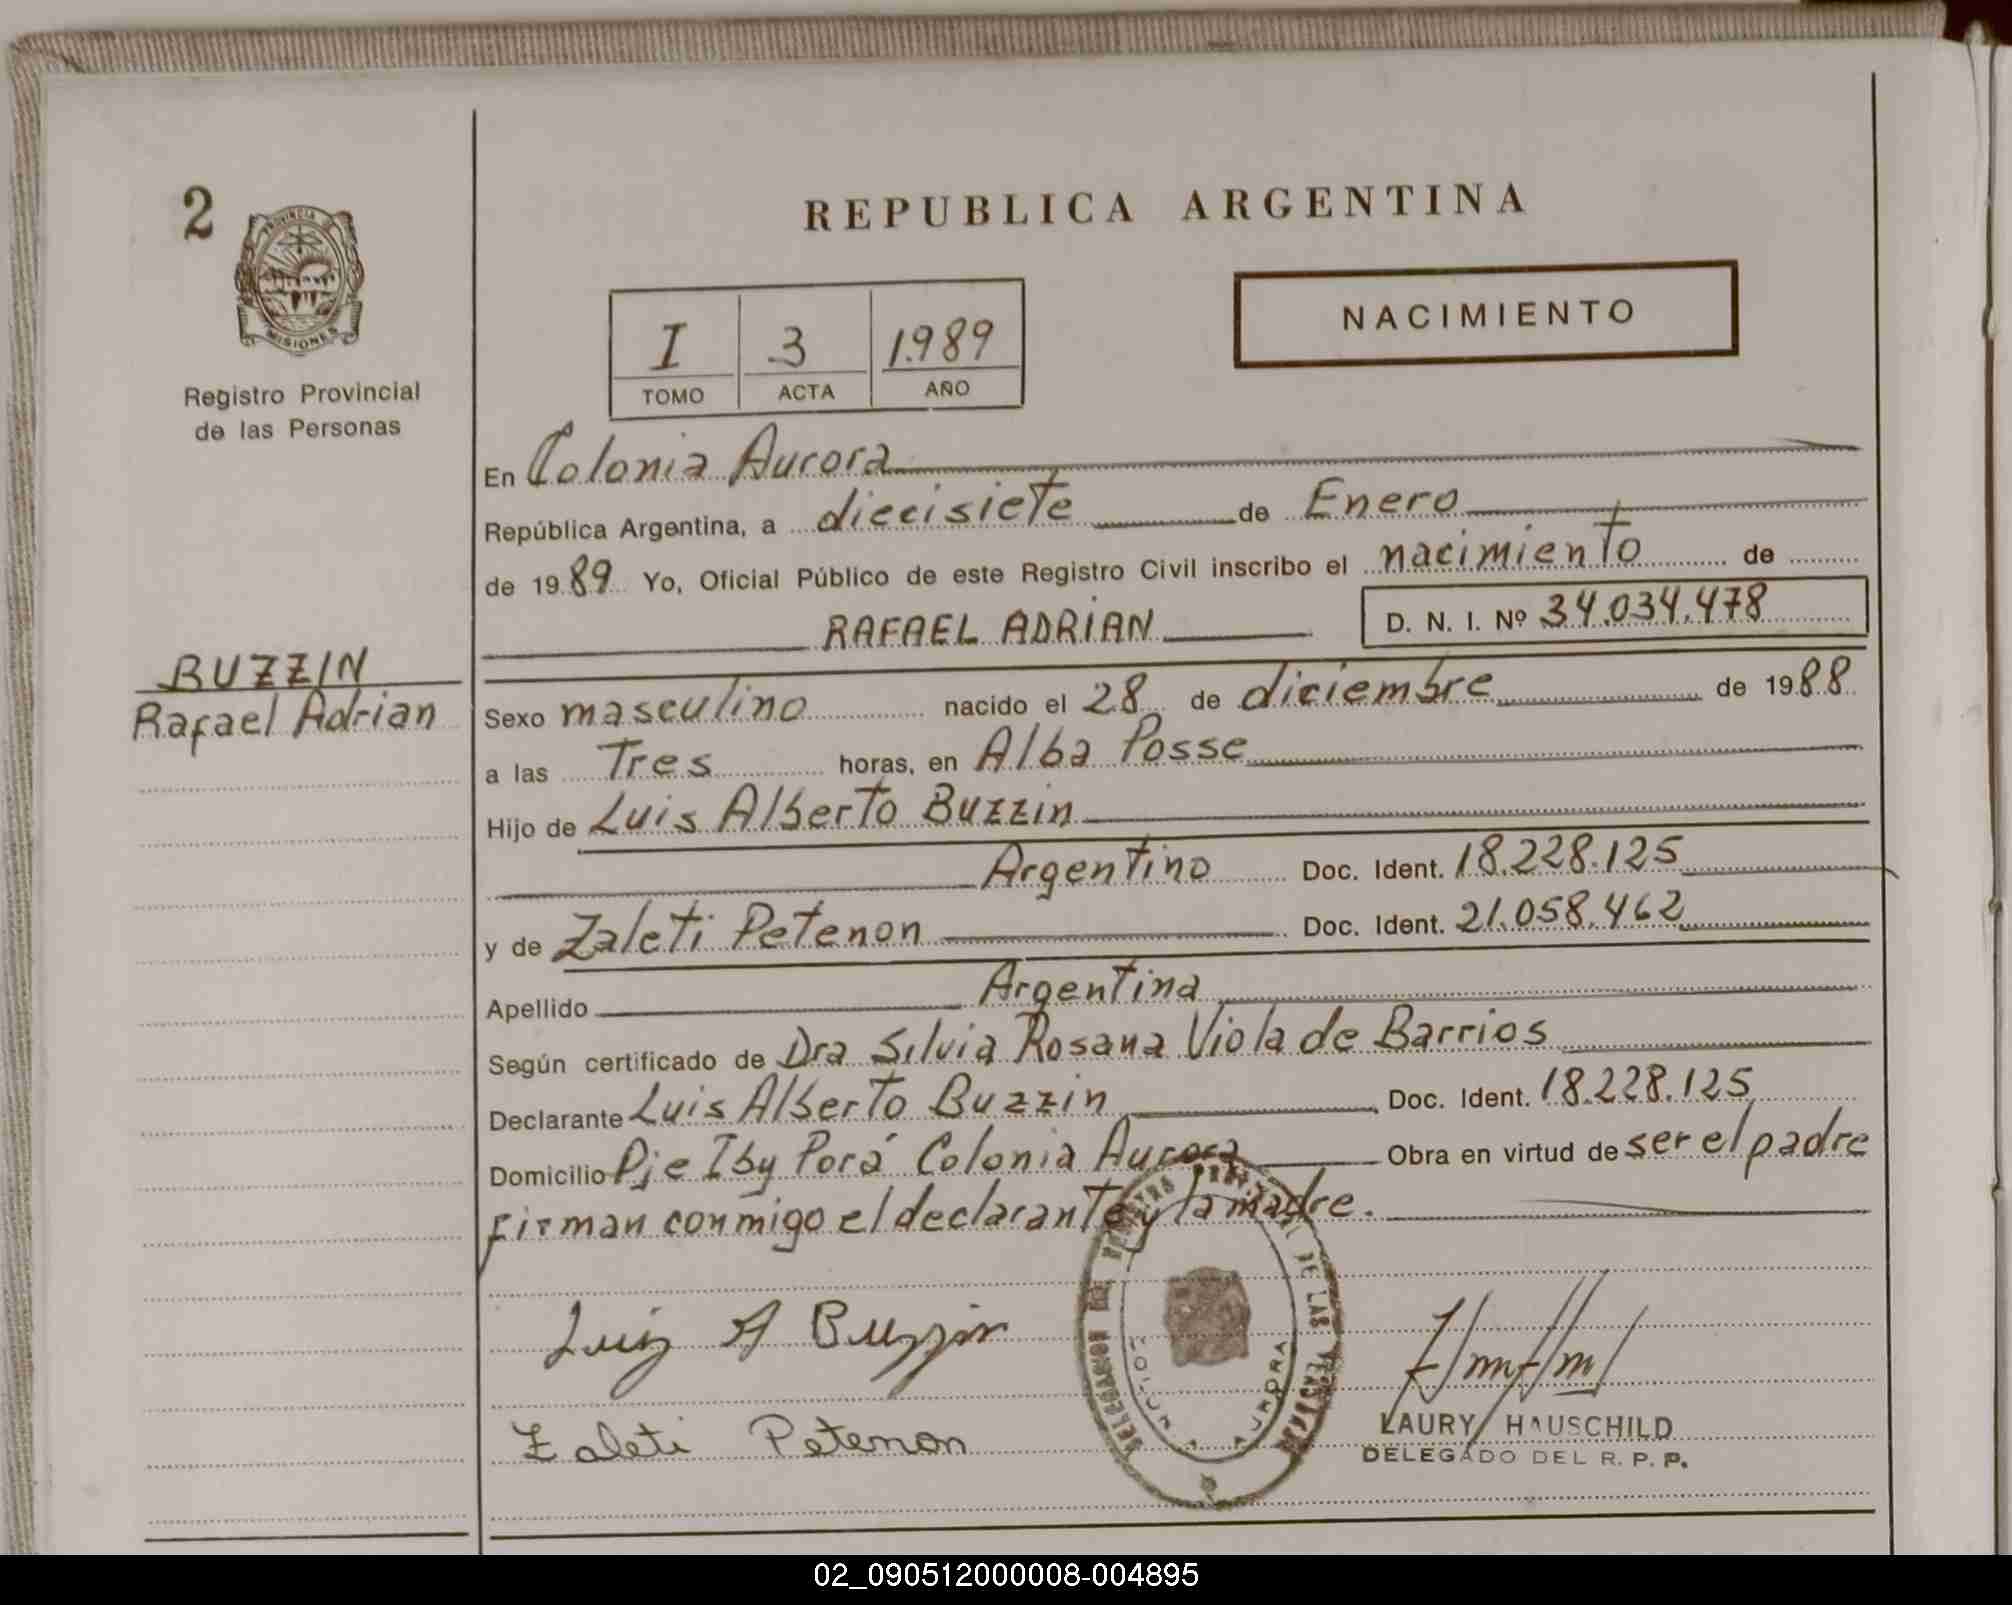 2
PROVINCIA DE
MISIONES
Registro Provincial
de las Personas
BUZZIN
Rafael Adrian
REPUBLICA ARGENTINA
I 3 1.989
TOMO ACTA AÑO
NACIMIENTO
En Colonia Aurora
República Argentina, a diecisiete de Enero
de 19 89 Yo, Oficial Público de este Registro Civil inscribo el nacimiento de
RAFAEL ADRIAN D. N. I. Nº 34.034.478
Sexo masculino nacido el 28 de diciembre de 19 88
a las Tres horas, en Alba Posse
Hijo de Luis Alberto Buzzin
Argentino Doc. Ident. 18.228.125
y de Zaleti Petenon Doc. Ident. 21.058.462
Apellido Argentina
Según certificado de Dra Silvia Rosana Viola de Barrios
Declarante Luis Alberto Buzzin Doc. Ident. 18.228.125
Domicilio Pje Iby Porá Colonia Aurora Obra en virtud de ser el padre
firman conmigo el declarante y la madre.
Luiz A Buzzin
Zaleti Petenon
DE LAS
AURORA
LAURY HAUSCHILD
DELEGADO DEL R. P. P.
02_090512000008-004895